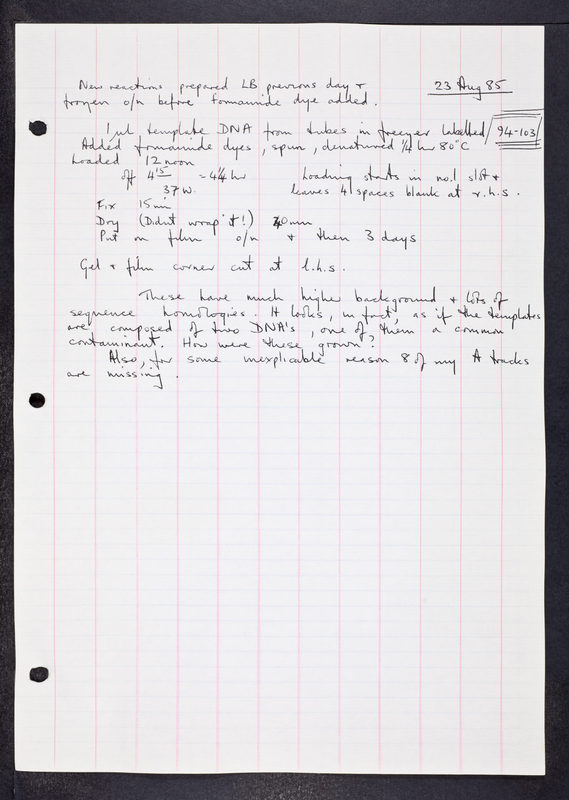 New reactions prepared LB previous day +
frozen o/n before formamide dye added.
23 Aug 85
1 µl template DNA from tubes in freezer labelled 94-103
Added formamide dyes, spun, denatured ¼ hr 80°C
Loaded 12 noon
Off 4 15 = 4¼ hr
37 W.
Loading starts in no.1 slot +
leaves 4 spaces blank at r.h.s.
Fix 15 min
Dry (Didnt wrap it!) 40 min
Put on film o/n + then 3 days
Gel + film corner cut at l.h.s.
These have much higher background + lots of
sequence homologies. It looks, in fact, as if the templates
are composed of two DNA's, one of them a common
contaminant. How were these grown?
Also, for some inexplicable reason 8 of my A tracks
are missing.